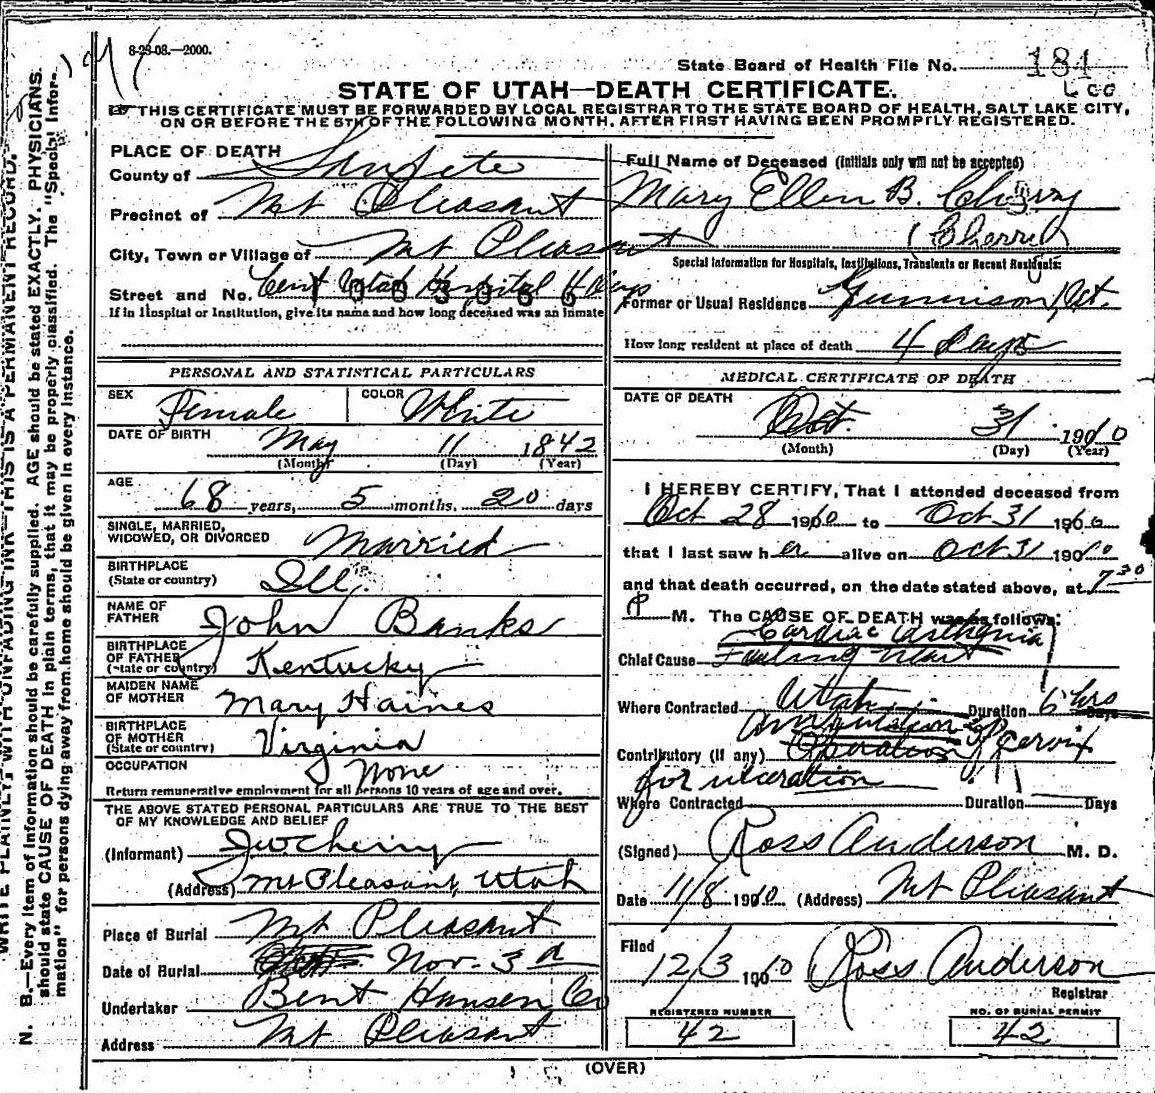 8-23-08.—2000.
State Board of Health File No. 181
STATE OF UTAH—DEATH CERTIFICATE.
THIS CERTIFICATE MUST BE FORWARDED BY LOCAL REGISTRAR TO THE STATE BOARD OF HEALTH, SALT LAKE CITY,
ON OR BEFORE THE 5TH OF THE FOLLOWING MONTH, AFTER FIRST HAVING BEEN PROMPTLY REGISTERED.
WRITE PLAINLY WITH UNFADING INK—THIS IS A PERMANENT RECORD.
N. B.—Every item of information should be carefully supplied. AGE should be stated EXACTLY. PHYSICIANS
should state CAUSE OF DEATH in plain terms, that it may be properly classified. The "Special Infor-
mation" for persons dying away from home should be given in every instance.
PLACE OF DEATH
County of Sanpete
Precinct of Mt Pleasant
City, Town or Village of Mt Pleasant
Street and No. Cent Utah Hospital 4 Days
If in Hospital or Institution, give its name and how long deceased was an inmate
PERSONAL AND STATISTICAL PARTICULARS
SEX Female COLOR White
DATE OF BIRTH May 11 1842
(Month) (Day) (Year)
AGE 68 years, 5 months, 20 days
SINGLE, MARRIED,
WIDOWED, OR DIVORCED Married
BIRTHPLACE
(State or country) Ill.
NAME OF
FATHER John Banks
BIRTHPLACE
OF FATHER
(State or country) Kentucky
MAIDEN NAME
OF MOTHER Mary Haines
BIRTHPLACE
OF MOTHER
(State or country) Virginia
OCCUPATION None
Return remunerative employment for all persons 10 years of age and over.
THE ABOVE STATED PERSONAL PARTICULARS ARE TRUE TO THE BEST
OF MY KNOWLEDGE AND BELIEF
(Informant) J W Cherry
(Address) Mt Pleasant, Utah
Place of Burial Mt Pleasant
Date of Burial Nov. 3d
Undertaker Bent Hansen Co
Address Mt Pleasant
Full Name of Deceased (Initials only will not be accepted)
Mary Ellen B. Cherry
(Cherry)
Special Information for Hospitals, Institutions, Transients or Recent Residents:
Former or Usual Residence Gunnison, Ut.
How long resident at place of death 4 Days
MEDICAL CERTIFICATE OF DEATH
DATE OF DEATH
Oct 31 1910
(Month) (Day) (Year)
I HEREBY CERTIFY, That I attended deceased from
Oct 28 1910 to Oct 31 1910
that I last saw her alive on Oct 31 1910
and that death occurred, on the date stated above, at 7 30
P M. The CAUSE OF DEATH was as follows:
Cardiac Asthenia
Chief Cause Failing Heart
Where Contracted Utah Duration 6 hrs Days
Amputation of
Contributory (if any) Operation of Cervix
for ulceration
Where Contracted Duration Days
(Signed) Ross Anderson M. D.
Date 11/8 1910 (Address) Mt Pleasant
Filed
12/3 1910 Ross Anderson
Registrar
REGISTERED NUMBER
42
NO. OF BURIAL PERMIT
42
(OVER)